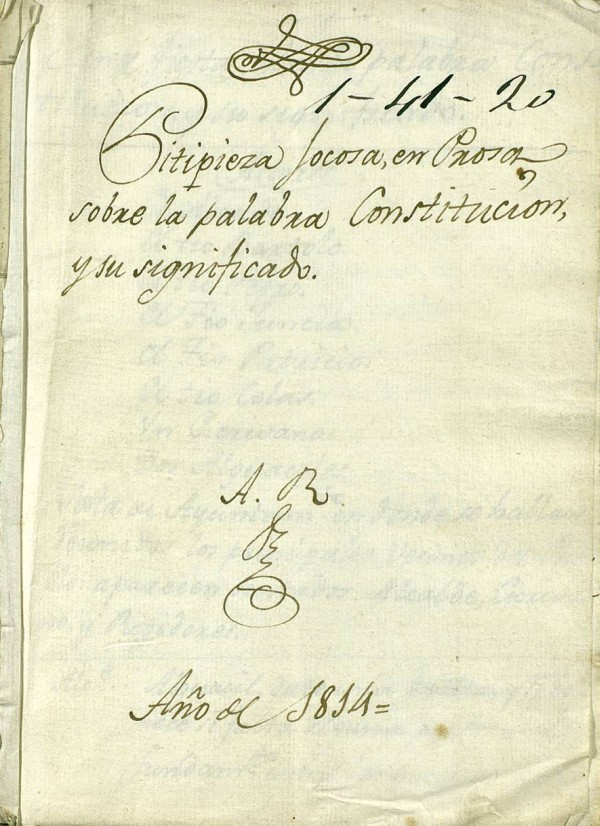 1-41-20
Pitipieza Jocosa, en Prosa
sobre la palabra Constitucion,
y su significado.
A. R
Año de 1814=